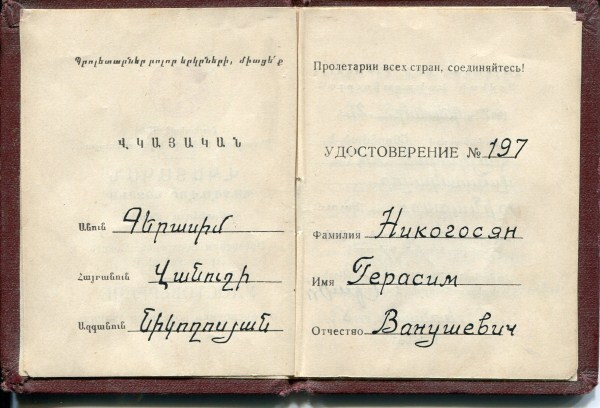 Պրոլետարներ բոլոր երկրների, միացե՛ք
ՎԿԱՅԱԿԱՆ
Անուն Գերասիմ
Հայրանուն Վանուշի
Ազգանուն Նիկողոսյան
Пролетарии всех стран, соединяйтесь!
УДОСТОВЕРЕНИЕ № 197
Фамилия Никогосян
Имя Герасим
Отчество Ванушевич